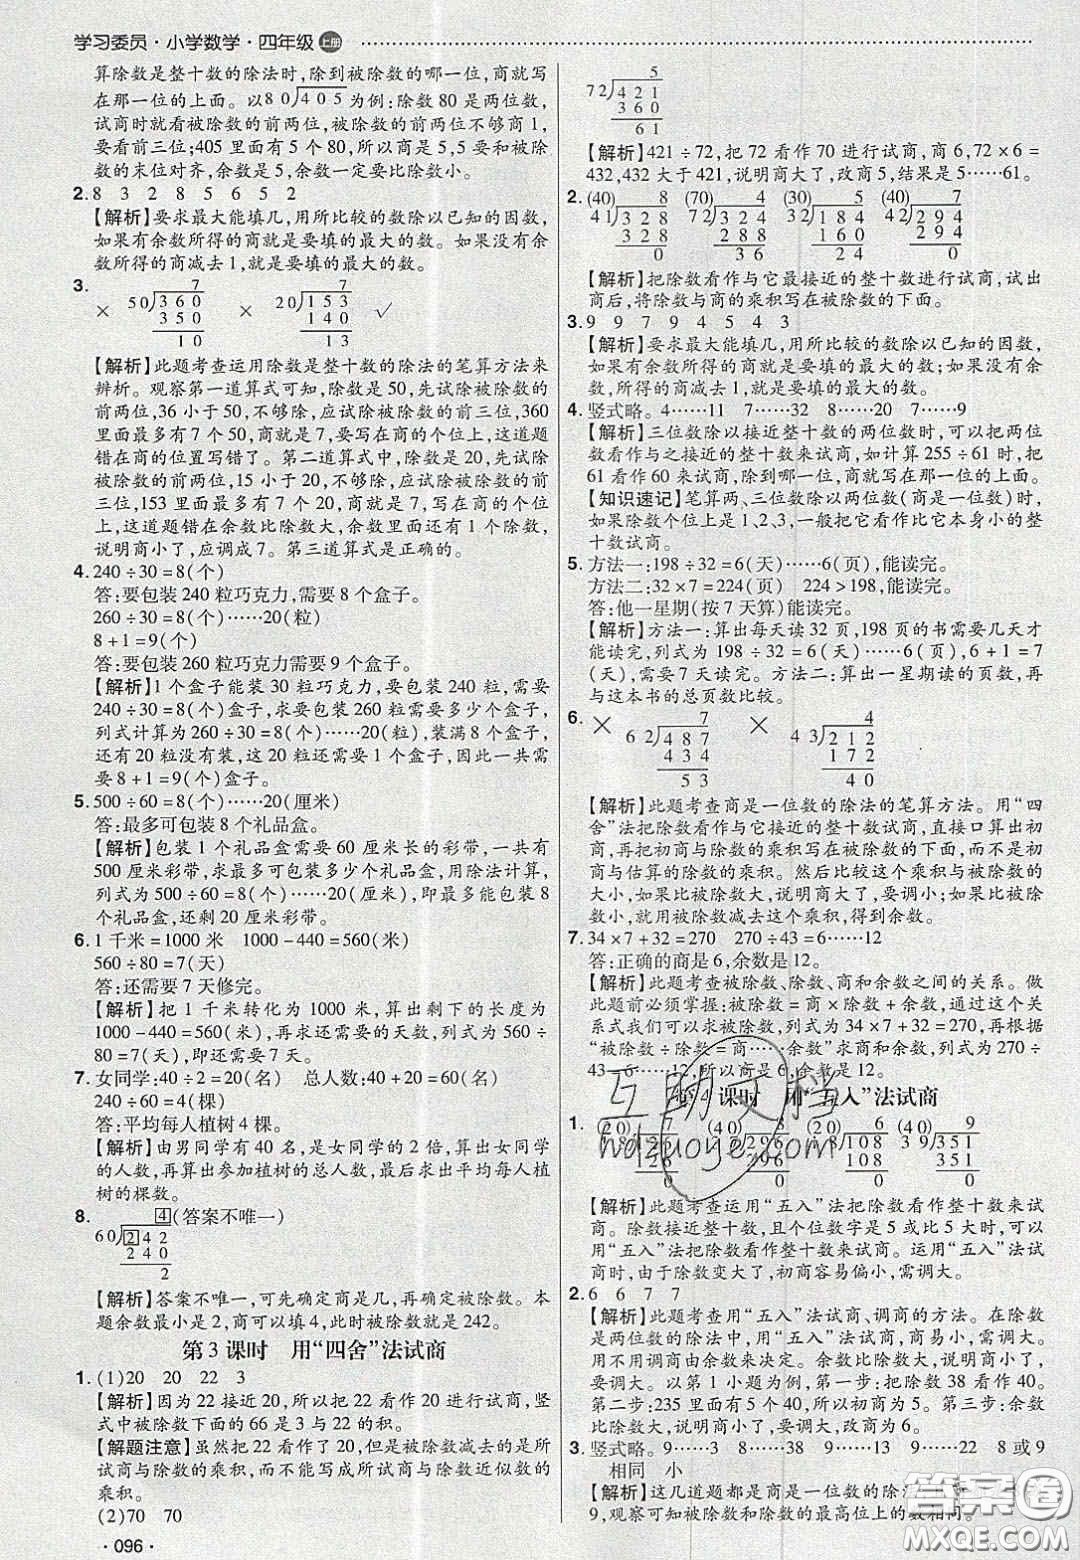 学习委员·小学数学·四年级 上册
算除数是整十数的除法时,除到被除数的哪一位,商就写
在那一位的上面。以80)405为例:除数 80 是两位数,
试商时就看被除数的前两位,被除数的前两位不够商 1,
要看前三位;405 里面有 5 个 80,所以商是 5,5 要和被除
数的末位对齐,余数是 5,余数一定要比除数小。
2. 8 3 2 8 5 6 5 2
【解析】要求最大能填几,用所比较的数除以已知的因数,
如果有余数所得的商就是要填的最大的数。如果没有余
数所得的商减去 1,就是要填的最大的数。
3.
× 7 50)360 350 10 × 7 20)153 140 13 √
【解析】此题考查运用除数是整十数的除法的笔算方法来
辨析。观察第一道算式可知,除数是 50,先试除被除数的
前两位,36 小于 50,不够除,应试除被除数的前三位,360
里面最多有 7 个 50,商就是 7,要写在商的个位上,这道题
错在商的位置写错了。第二道算式中,除数是 20,先试除
被除数的前两位,15 小于 20,不够除,应试除被除数的前
三位,153 里面最多有 7 个 20,商就是 7,写在商的个位
上,这道题错在余数比除数大,余数里面还有一个除数,
说明商小了,应调成 7。第三道算式是正确的。
4. 240÷30=8(个)
答:要包装 240 粒巧克力,需要 8 个盒子。
260÷30=8(个)……20(粒)
8+1=9(个)
答:要包装 260 粒巧克力需要 9 个盒子。
【解析】1 个盒子能装 30 粒巧克力,要包装 240 粒,需要
240÷30=8(个)盒子,求要包装 260 需要多少个盒子,
列式计算为 260÷30=8(个)……20(粒),装满 8 个盒子,
还有 20 粒没有装,这 20 粒还需要一个盒子,因此一共需
要 8+1=9(个)盒子。
5. 500÷60=8(个)……20(厘米)
答:最多可包装 8 个礼品盒。
【解析】包装 1 个礼品盒需要 60 厘米长的彩带,一共有
500 厘米的彩带,求最多可包装多少个,用除法计算,
列式为 500÷60=8(个)……20(厘米),即最多能包装 8
个礼品盒,还剩 20 厘米彩带。
6. 1 千米=1000 米 1000-440=560(米)
560÷80=7(天)
答:还需要 7 天修完。
【解析】把 1 千米转化为 1000 米,算出剩下的长度为
1000-440=560(米),再求还需要的天数,列式为 560÷
80=7(天),即还需要 7 天。
7. 女同学:40÷2=20(名) 总人数:40+20=60(名)
240÷60=4(棵)
答:平均每人植树 4 棵。
【解析】由男同学有 40 名,是女同学的 2 倍,算出女同学
的人数,再计算参加植树的总人数,最后求出平均每人植
树的棵数。
8. 4(答案不唯一)
60)242
240
2
【解析】答案不唯一,可先确定商是几,再确定被除数。本
题余数最小是 2,商可以填 4,此时被除数是 242。
第 3 课时 用“四舍”法试商
1. (1)20 20 22 3
【解析】因为 22 接近 20,所以把 22 看作 20 进行试商,竖
式中被除数下面的 66 是 3 与 22 的积。
【解题注意】虽然把 22 看作了 20,但被除数减去的是所
试商与除数的乘积,而不能写成所试商与除数近似数的
乘积。
(2)70 70
·096·
5
72)421
360
61
【解析】421÷72,把 72 看作 70 进行试商,商 6,72×6=
432,432 大于 421,说明商大了,改商 5,结果是 5……61。
2. (40) 8 (70) 4 (30) 5 (40) 7
41)328 72)324 31)184 42)294
328 288 160 294
0 36 24 0
【解析】把除数看作与它最接近的整十数进行试商,试出
商后,将除数与商的乘积写在被除数的下面。
3. 9 9 7 9 4 5 4 3
【解析】要求最大能填几,用所比较的数除以已知的因数,
如果有余数所得的商就是要填的最大的数;如果没有余
数,所得的商减去 1,就是要填的最大的数。
4. 竖式略。4……11 7……32 8……20 7……9
【解析】三位数除以接近整十数的两位数时,可以把两位
数看作与之接近的整十数来试商,如计算 255÷61 时,把
61 看作 60 来试商,除到哪一位,商就写在哪一位的上面。
【知识速记】笔算两、三位数除以两位数(商是一位数)时,
如果除数个位上是 1、2、3,一般把它看作比它本身小的整
十数试商。
5. 方法一:198÷32=6(天)……6(页),能读完。
方法二:32×7=224(页) 224>198,能读完。
答:他一星期(按 7 天算)能读完。
【解析】方法一:算出每天读 32 页,198 页的书需要几天才
能读完,列式为 198÷32=6(天)……6(页),6+1=7
(天),需要 7 天读完。方法二:算出一星期读的页数,再
与这本书的总页数比较。
6. × 7 × 4
62)487 43)212
434 172
53 40
【解析】此题考查商是一位数的除法的笔算方法。用“四
舍”法把除数看作与它接近的整十数试商,直接口算出初
商,再把初商与除数的乘积写在被除数的下面,而不是初
商与估算的除数的乘积。然后比较这个乘积与被除数的
大小,如果比被除数大,说明商大了,要调小;如果比被除数
小,就用被除数减去这个乘积,得到余数。
7. 34×7+32=270 270÷43=6……12
答:正确的商是 6,余数是 12。
【解析】此题考查被除数、除数、商和余数之间的关系。做
此题前必须掌握:被除数=商×除数+余数,通过这个关
系式我们可以求被除数,列式为 34×7+32=270,再根据
“被除数÷除数=商……余数”求商和余数,列式为 270÷
43=6……12,所以商是 6,余数是 12。
第 4 课时 用“五入”法试商
1. (20) 7 (40) 8 (20) 6 (40) 9
18)126 296 18)108 39)351
126 296 108 351
0 0 0 0
【解析】此题考查运用“五入”法把除数看作整十数来试
商。除数接近整十数,且个位数字是 5 或比 5 大时,可以
用“五入”法把除数看作整十数来试商。运用“五入”法
试商时,由于除数变大了,初商容易偏小,需调大。
2. 6 6 7 7
【解析】此题考查用“五入”法试商、调商的方法。在除数
是两位数的除法中,用“五入”法试商,商易小,需调大。
调大不用再试商由余数来决定。余数比除数大,说明商
小了。以第 1 小题为例,第一步:把除数 38 看作 40。
第二步:235 里面有 5 个 40,所以初商为 5。第三步:余数
比除数大,说明商小了,要调大,改商为 6。
3. 竖式略。9……3 8……38 9……13 9……22 8 或 9
相同 小
【解析】这几道题都是商是 的除法
9,观察可知被除数和除数的最高位上的数相同。
互助文档
hdzuoye.com
答案圈
MXQE.COM